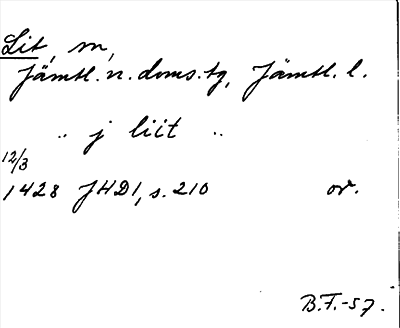 Lit, m,
Jämtl. n. doms. tg, Jämtl. l.
.. j liit ..
12/3
1428 JHD1, s. 210 or.
B.F.-57.